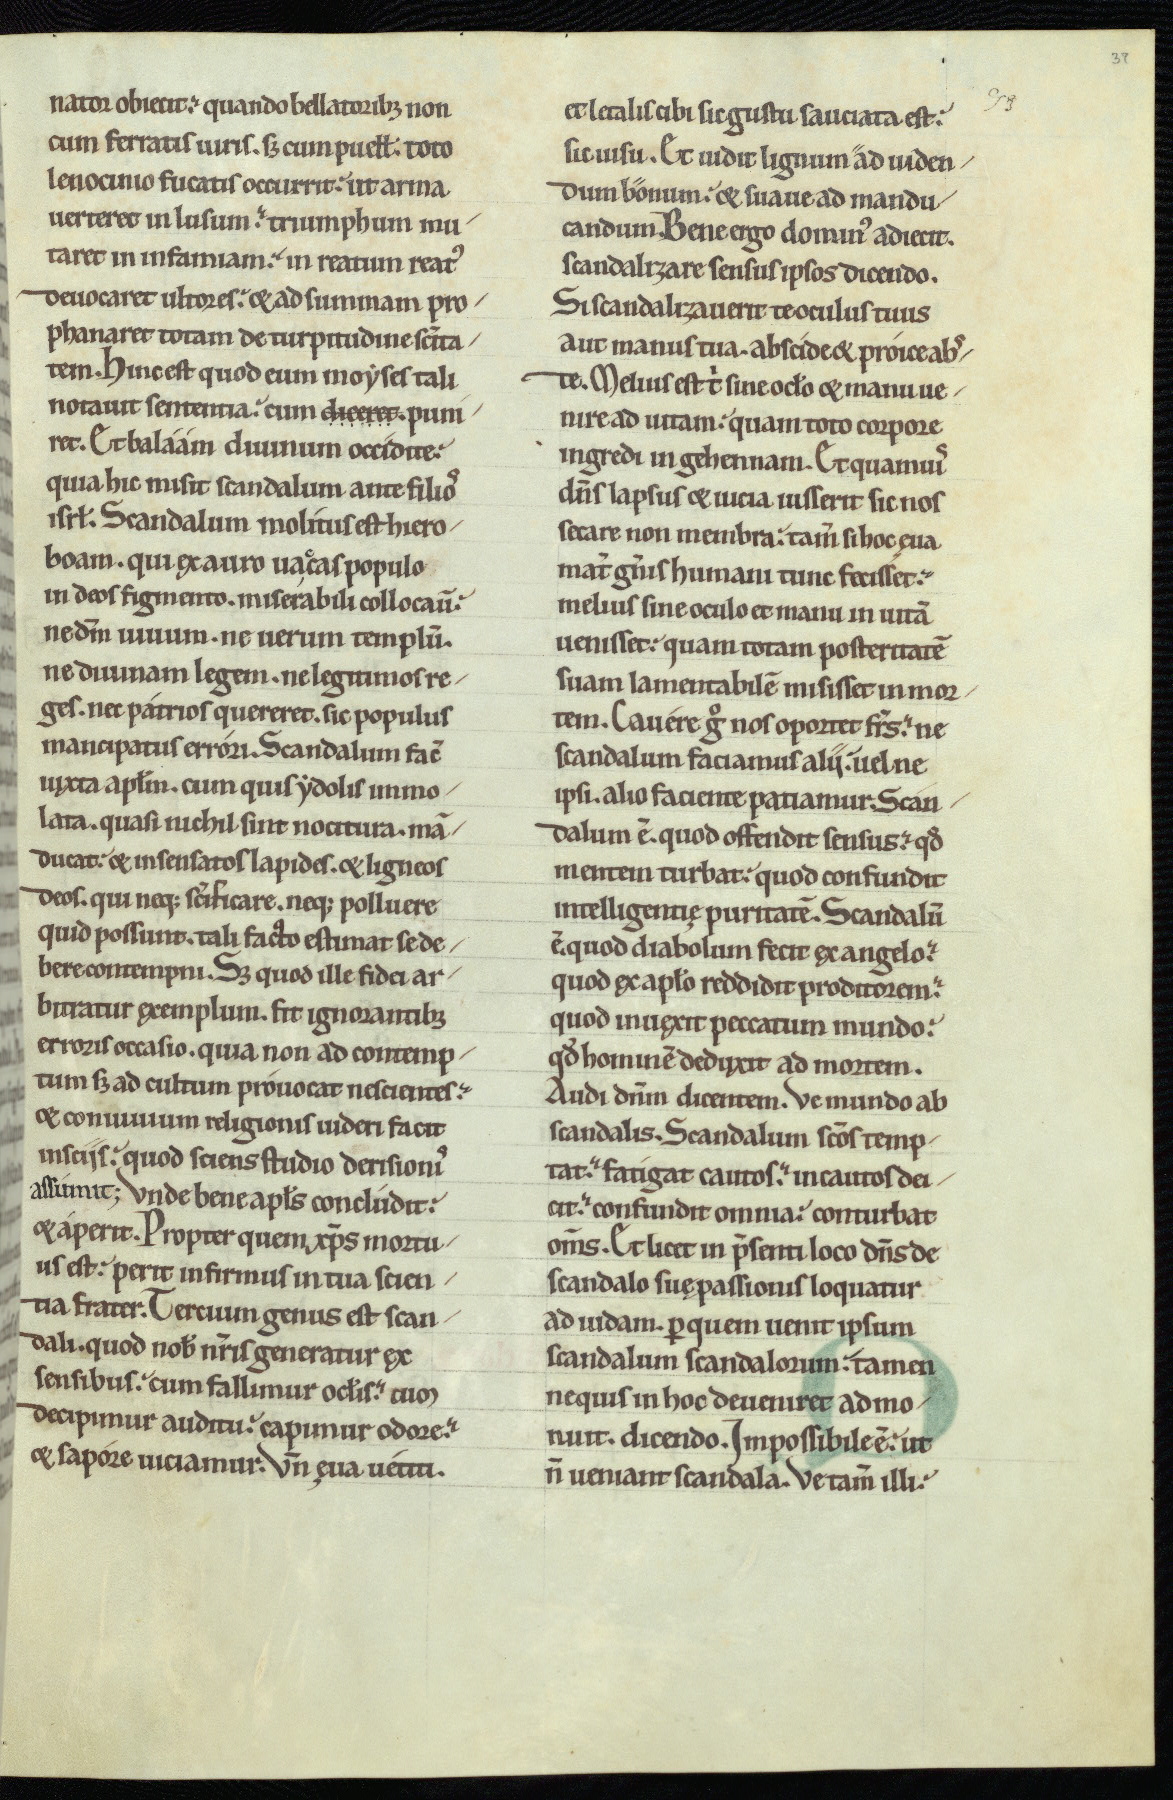 38
98
nator obiecit. quando bellatorib; non
cum ferratis uiris. s; cum puell. toto
lenocinio fucatis occurrit. ut arma
uerteret in lusum. triumphum mu/
taret in infamiam. in reatum reat᾿
deuocaret ultores. & ad summam pro/
phanaret totam de turpitudine scīta/
tem. Hinc est quod eum moyses tali
notauit sententia. cum diceret. puni/
ret. Et balaam diuinum occidite.
quia hic misit scandalum ante filio᾿
isrł. Scandalum molitus est hiero/
boam. qui ex auro uaccas populo
in deos figmento. miserabili collocau̅.
ne dm̅ uiuum. ne uerum templu̅.
ne diuinam legem. ne legitimos re/
ges. nec patrios quereret. sic populus
mancipatus errori. Scandalum fac̅
iuxta apłm. cum quis ydolis immo/
lata. quasi nichil sint nocitura. ma̅/
ducat. & insensatos lapides. & ligneos
deos. qui neq; sc̅ificare. neq; polluere
quid possunt. tali facto estimat se de/
bere contempni. S; quod ille fidei ar/
bitratur exemplum. fit ignorantib;
erroris occasio. quia non ad contemp/
tum s; ad cultum prouocat nescientes.
& conuiuium religionis uideri facit
insciis. quod sciens studio derisioni᾿
assumit; Vnde bene apłs concludit.
& aperit. Propter quem xp̅s mortu/
us est. perit infirmus in tua scien/
tia frater. Tercium genus est scan/
dali. quod nob̅ nr̅is generatur ex
sensibus. cum fallimur ocłis. cum
decipimur auditu. capimur odore.
& sapore uiciamur. Vn̅ eua uetiti.
et letalis cibi sic gustu sauciata est.
sic uisu. Et uidit lignum ad uiden/
dum bonum. & suaue ad mandu/
candum. Bene ergo domin᾿ adiecit.
scandalizare sensus ipsos dicendo.
Si scandalizauerit te oculus tuus
aut manus tua. abscide & proice abs/
te. Melius est t̅ sine ocło & manu ue/
nire ad uitam. quam toto corpore
ingredi in gehennam. Et quamuis
dn̅s lapsus & uicia iusserit sic nos
secare non membra. tam̅ si hoc eua
mat̅ gn̅is humani tunc fecisset.
melius sine oculo et manu in uita̅
uenisset. quam totam posteritate̅
suam lamentabile̅ misisset in mor/
tem. Cauere gͦ nos oportet fr̅s. ne
scandalum faciamus alij. uel ne
ipsi. alio faciente patiamur. Scan/
dalum e̅. quod offendit sensus. qd̅
mentem turbat. quod confundit
intelligentię puritate̅. Scandalu̅
e̅. quod diabolum fecit ex angelo.
quod ex apło reddidit proditorem.
quod inuexit peccatum mundo.
qd̅ homine̅ deduxit ad mortem.
Audi dn̅m dicentem. Ve mundo ab
scandalis. Scandalum sc̅os temp/
tat. fatigat cautos. incautos dei/
cit. confundit omnia. conturbat
om̅s. Et licet in p̅senti loco dn̅s de
scandalo suę passionis loquatur
ad iudam. ꝑ quem uenit ipsum
scandalum scandalorum. tamen
nequis in hoc deueniret admo/
nuit. dicendo. Impossibile e̅. ut
n̅ ueniant scandala. Ve tam̅ illi.